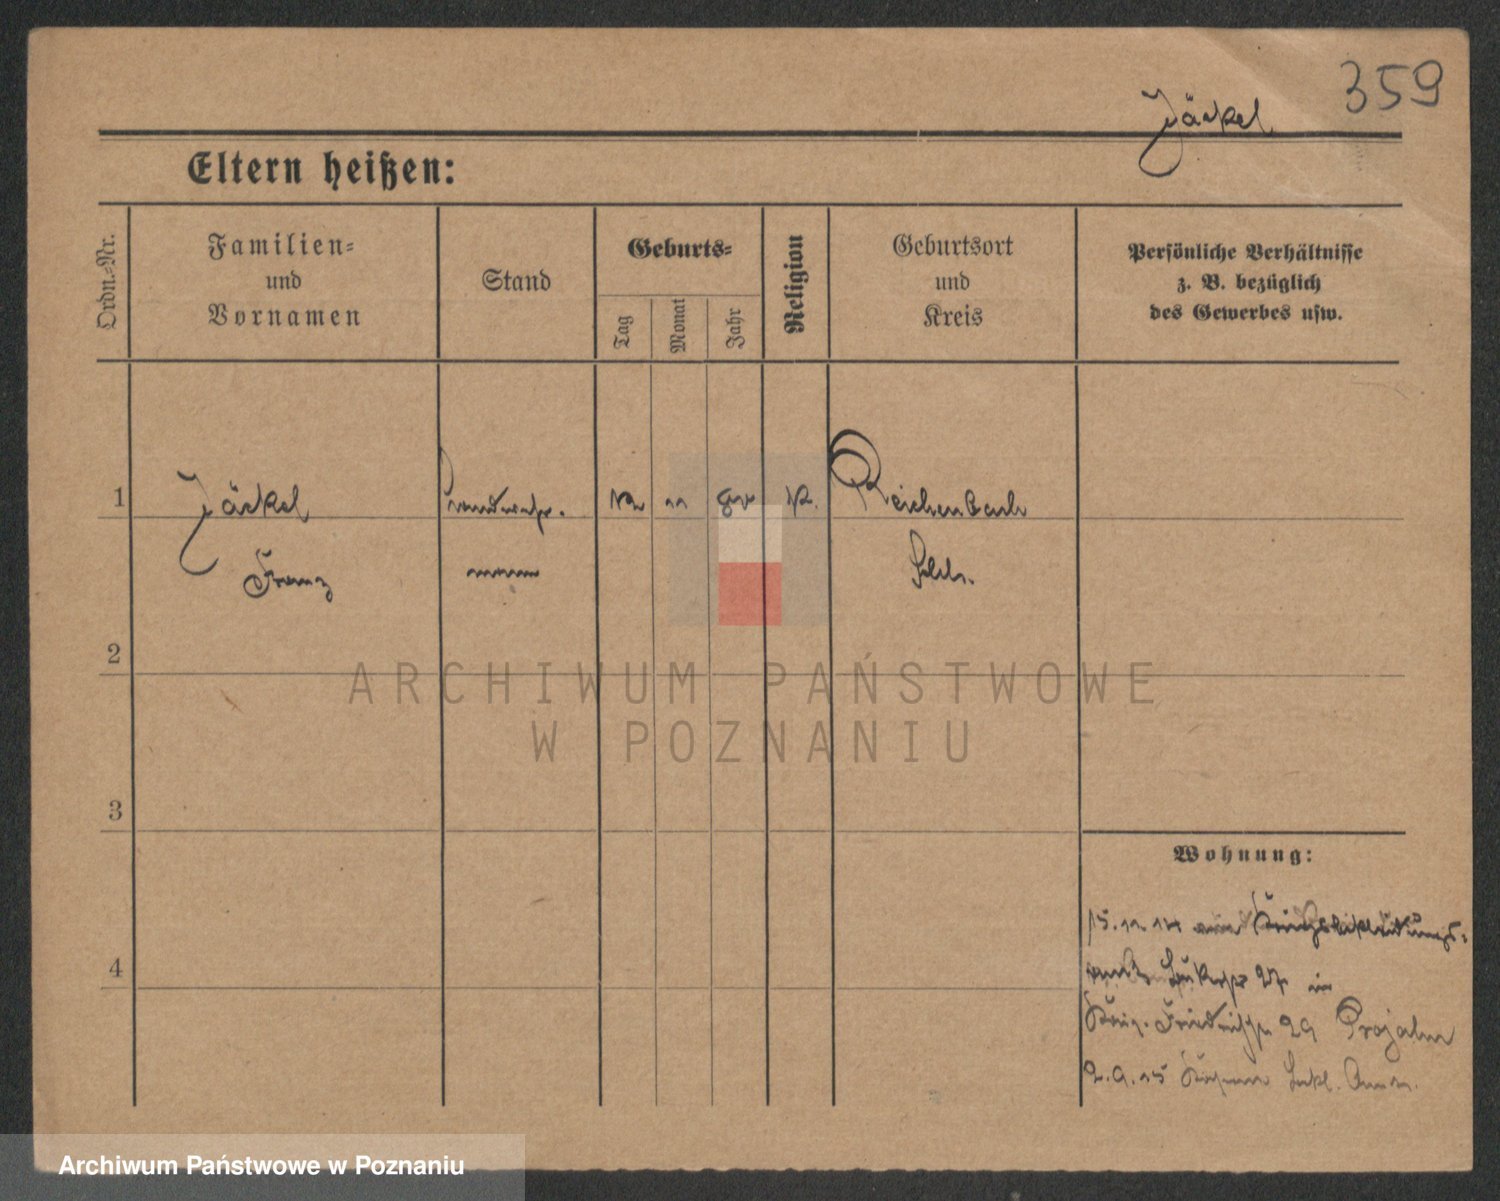 359
Jäckel
Eltern heißen:
Ordn.-Nr.
Familien-
und
Vornamen
Stand
Geburts-
Tag
Monat
Jahr
Religion
Geburtsort
und
Kreis
Persönliche Verhältnisse
z. B. bezüglich
des Gewerbes usw.
1
Jäckel
Franz
Landwehr-
mann
11
K.
Reichenbach
Schls.
2
3
4
Wohnung:
15.11.14 Kriegsbekleidungs-
amt 27 in
Friedrichstr. 29
2.9.15
ARCHIWUM PAŃSTWOWE
W POZNANIU
Archiwum Państwowe w Poznaniu